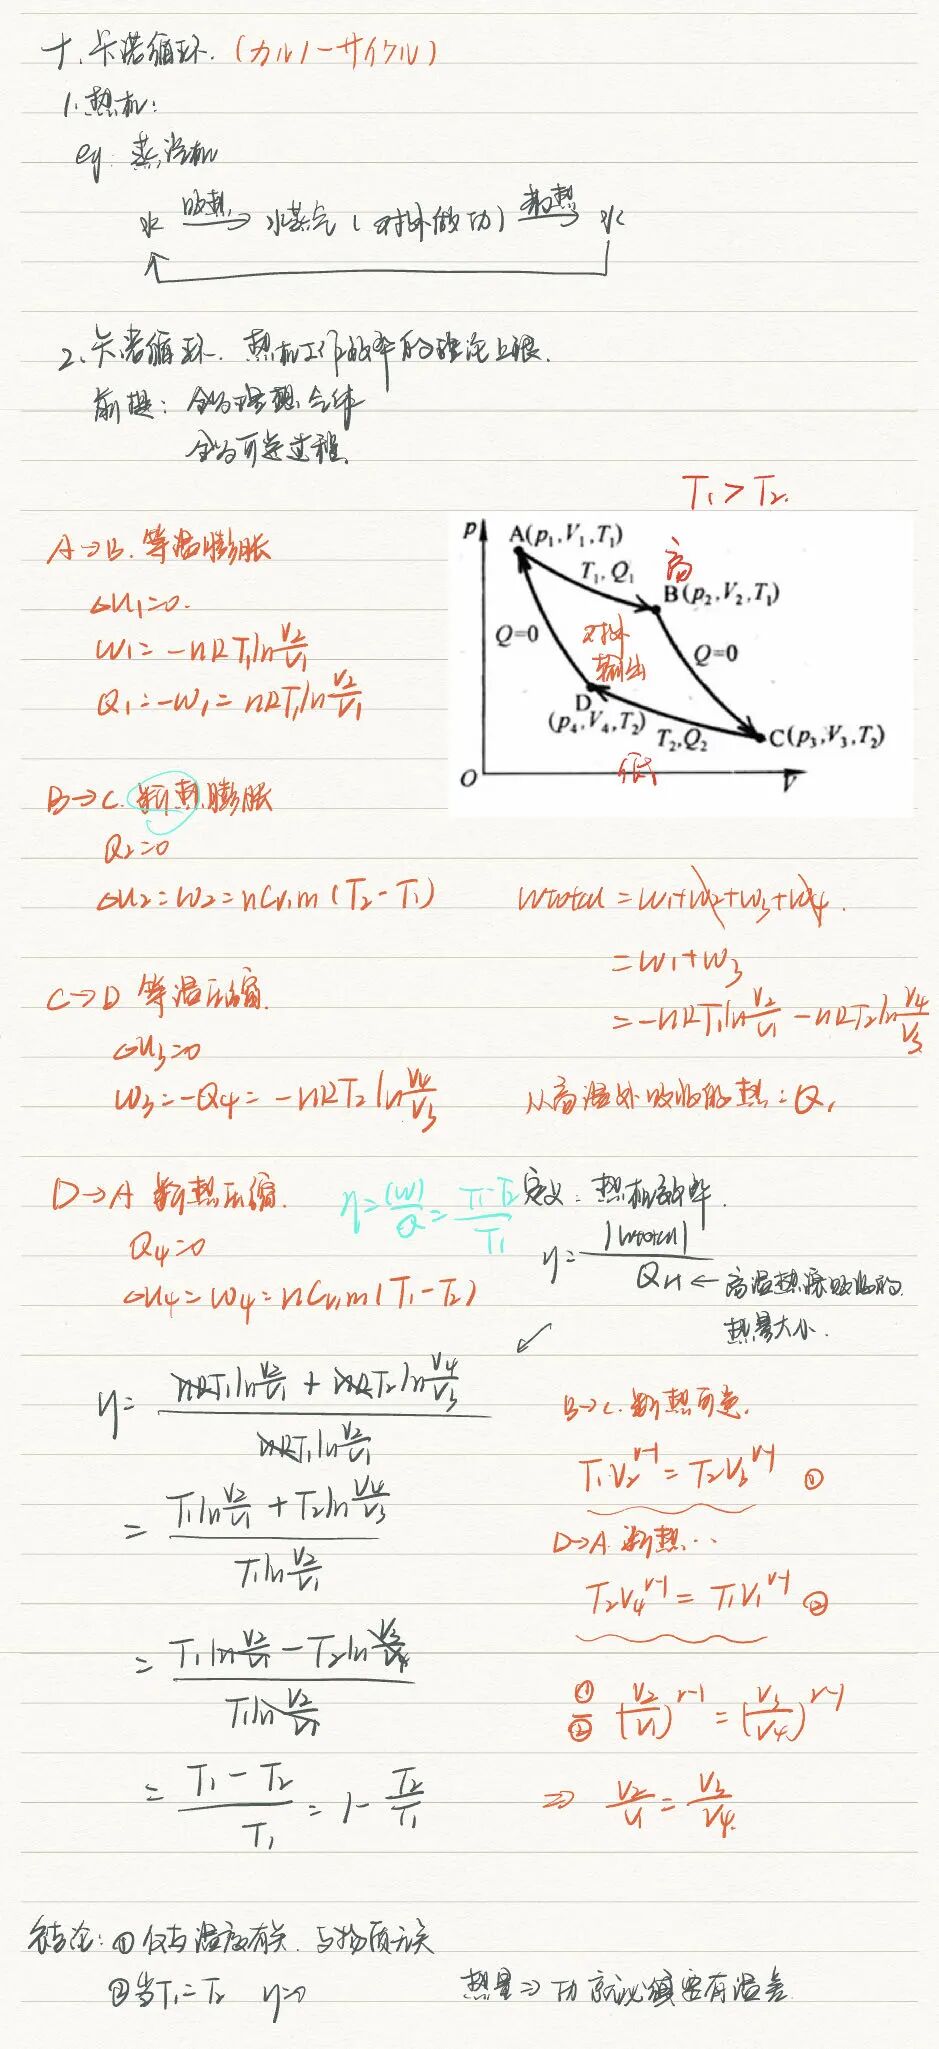 十、卡诺循环.(カルノーサイクル)
1.热机:
eg: 蒸汽机
水 吸热→ 水蒸气(对外做功) 放热→ 水
2、卡诺循环. 热机工作效率的理论上限.
前提: 全为理想气体
全为可逆过程.
T₁ > T₂.
A→B. 等温膨胀
ΔU₁=0.
W₁ = -nRT₁ln V₂/V₁
Q₁=-W₁= nRT₁ln V₂/V₁
p
A(p₁,V₁,T₁)
T₁,Q₁
高
B(p₂,V₂,T₁)
Q=0
对外
输出
Q=0
D
(p₄,V₄,T₂)
T₂,Q₂
C(p₃,V₃,T₂)
低
O
V
B→C. 断热膨胀
Q₂=0
ΔU₂=W₂=nCv,m(T₂-T₁)
C→D 等温压缩.
ΔU₃=0
W₃=-Q₄= -nRT₂ ln V₄/V₃
D→A 断热压缩.
Q₄=0
ΔU₄=W₄=nCv,m(T₁-T₂)
Wtotal = W₁+W₂+W₃+W₄.
=W₁+W₃
=-nRT₁ln V₂/V₁ -nRT₂ln V₄/V₃
从高温处吸收的热:Q₁
η=(W)/Q=T₁-T₂/T₁
定义:热机效率.
η=|Wtotal|/QH ← 高温热源吸收的
热量大小.
η= nRT₁ln V₂/V₁ + nRT₂ln V₄/V₃ / nRT₁ln V₂/V₁
= T₁ln V₂/V₁ + T₂ln V₄/V₃ / T₁ln V₂/V₁
= T₁ln V₂/V₁ - T₂ln V₃/V₄ / T₁ln V₂/V₁
= T₁-T₂/T₁ = 1-T₂/T₁
B→C.断热可逆.
T₁V₂^γ-1=T₂V₃^γ-1 ①
D→A.断热..
T₂V₄^γ-1=T₁V₁^γ-1 ②
①/② (V₂/V₁)^γ-1=(V₃/V₄)^γ-1
⇒ V₂/V₁=V₃/V₄.
结论:①仅与温度有关.与物质无关
②当T₁=T₂ η=0 热量⇒功就必须要有温差.